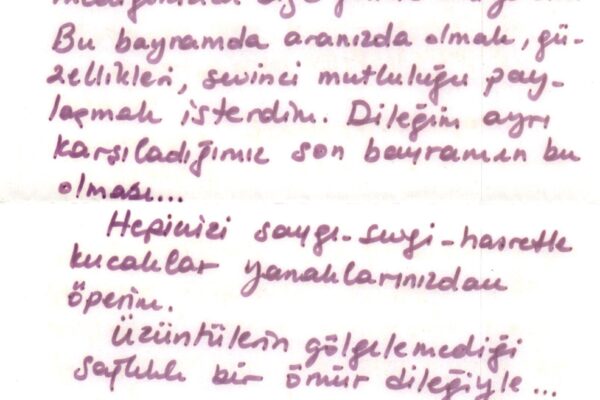 Bu bayramda aranızda olmak, gü-
zellikleri, sevinci mutluluğu pay-
laşmak isterdim. Dileğim ayrı
karşıladığımız son bayramın bu
olması...
Hepinizi saygı-sevgi-hasretle
kucaklar yanaklarınızdan
öperim.
Üzüntülerin gölgelemediği
sağlıklı bir ömür dileğiyle...